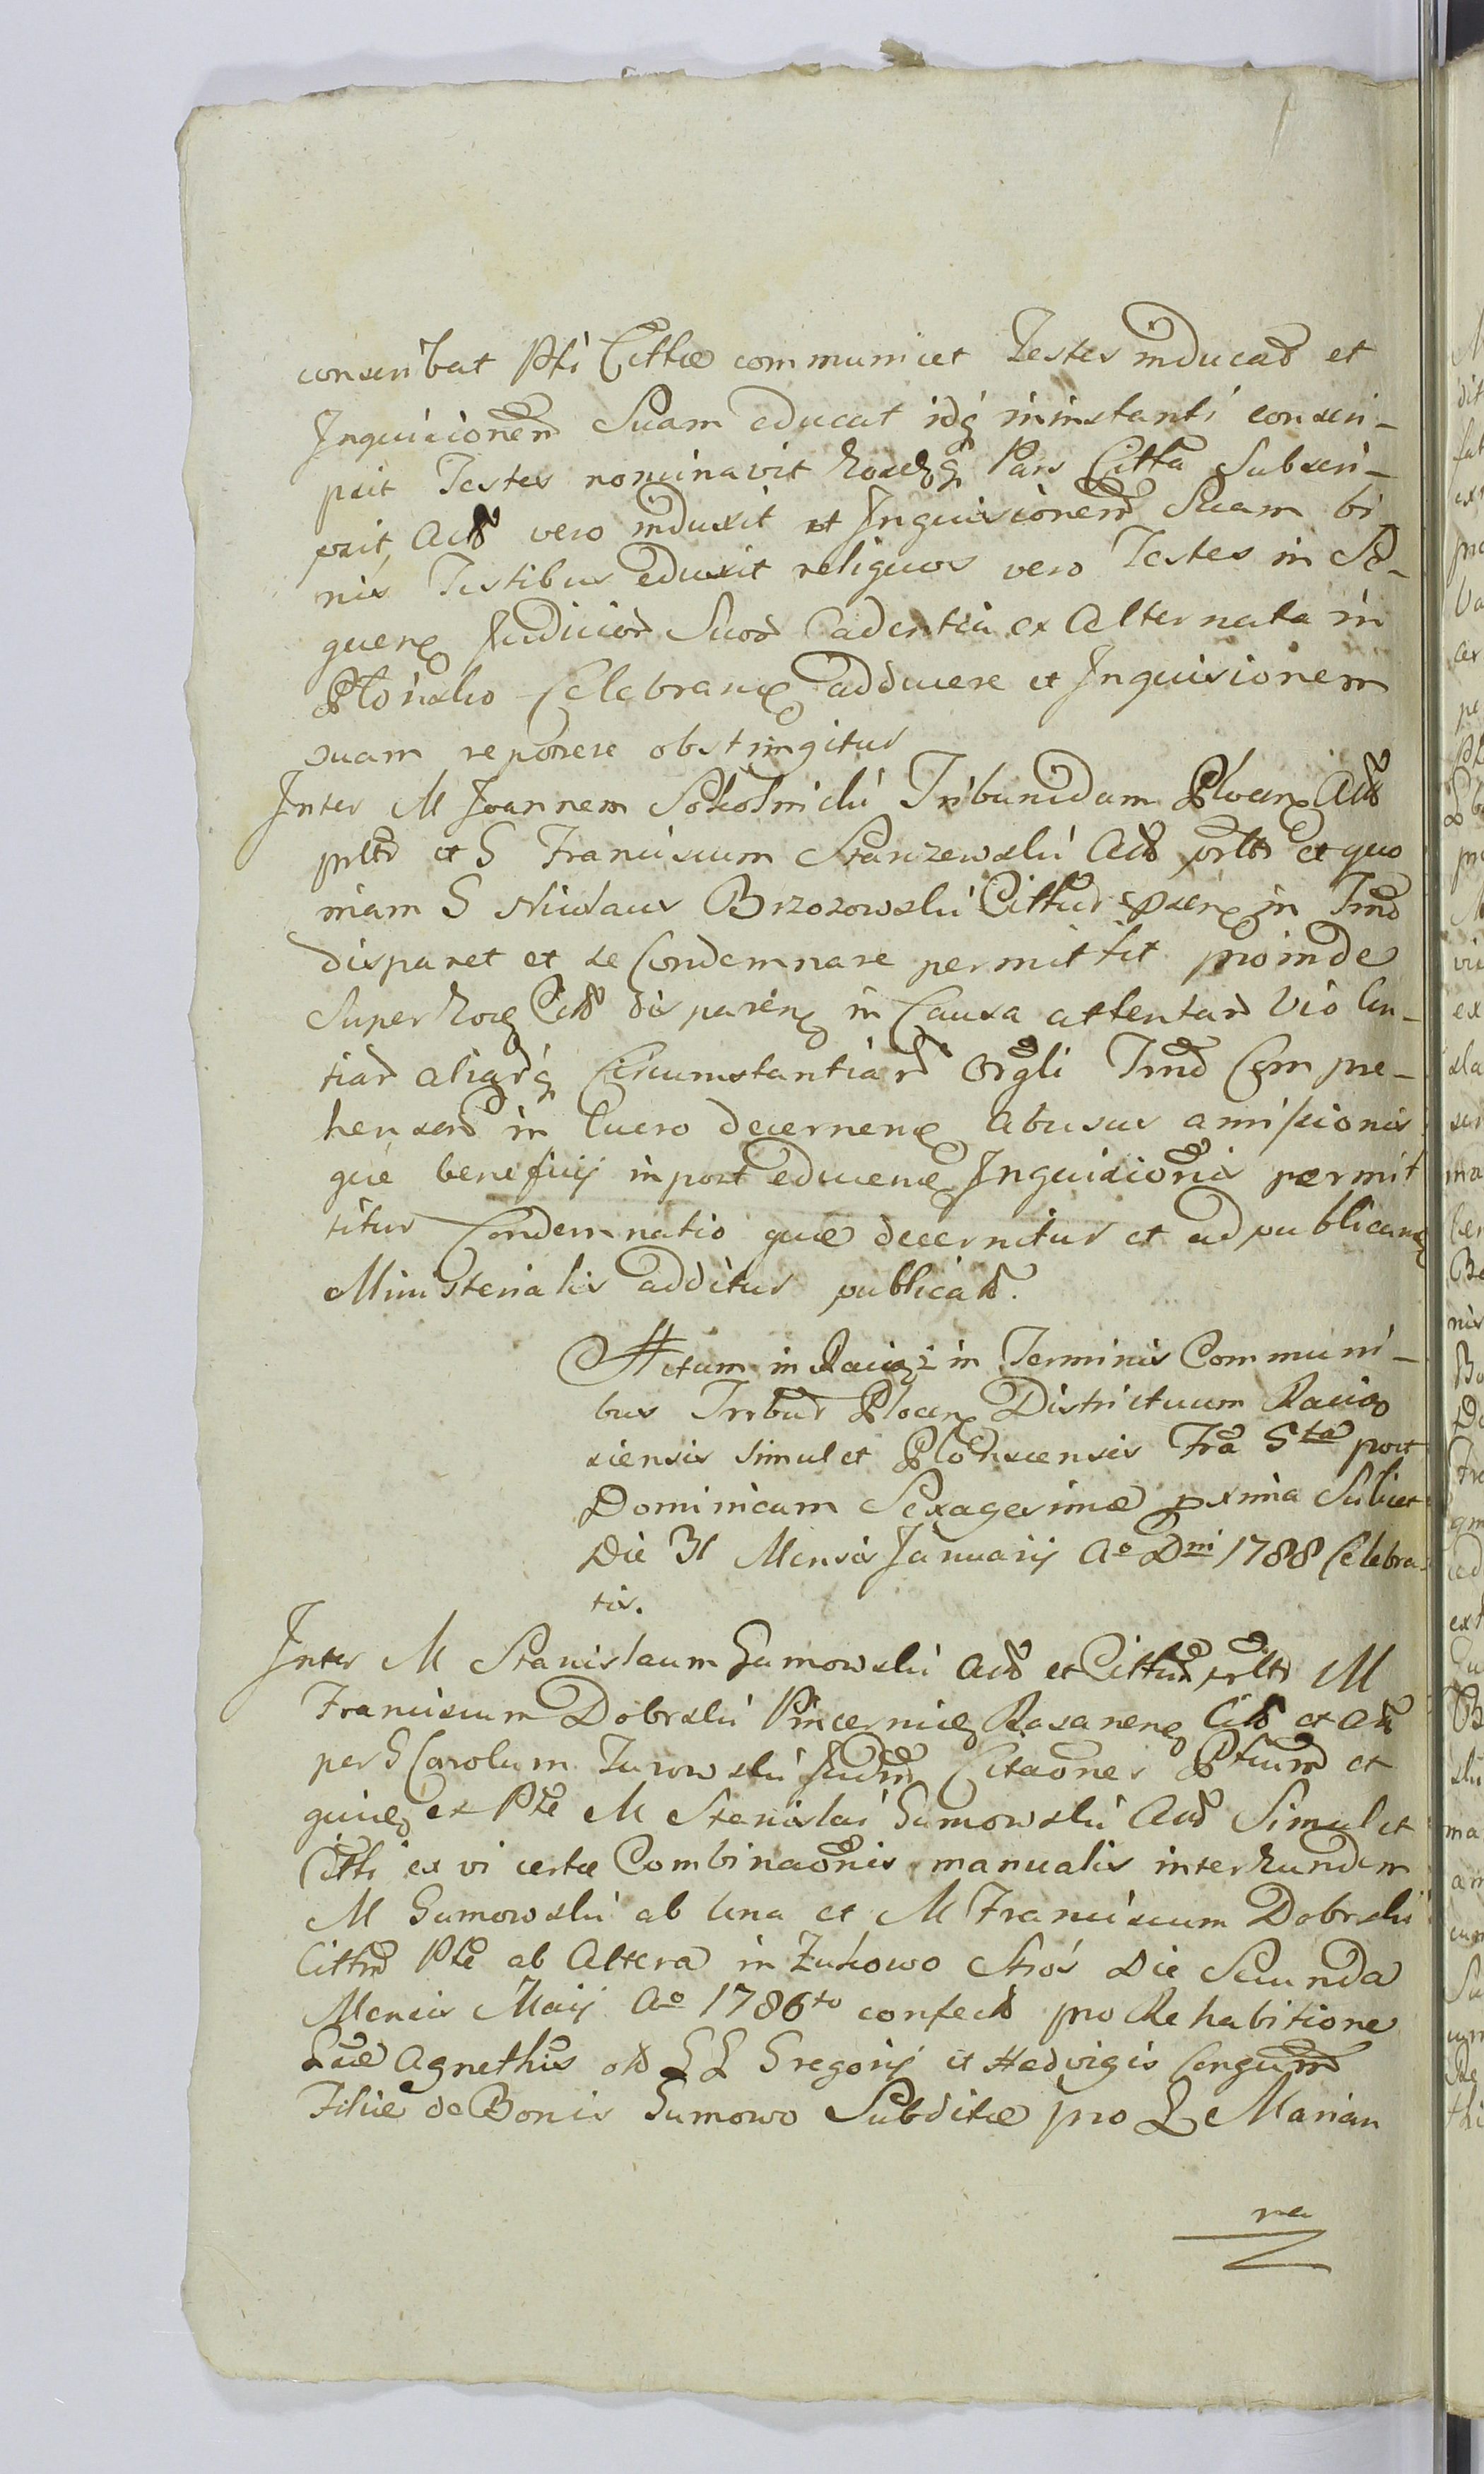 conscribat Pti Cittae communicet Testes inducat et
Inquisionem Suam educat idq in instanti conscri-
psit Testes nominavit hosdq Pars Citta Subscri-
psit, Act vero induxit et Inquisionem Suam bi
nis Testibus eduxit reliquos vero Testes in Se-
quen Judicior Suor Cadentia ex Alternata in
Płońsko Celebran adducere et Inquisionem
suam reponere obstringitur
Inter M Joannem Sokolnicki Tribunidam Plocen Act
prltr et G Franciscum Staniszewski Act prltr et quo
niam G Nicolaus Brzozowski Cittus in Tmo
disparet et se Condemnare permittit proinde
Super hocq Citt disparen in Causa attentar Violen-
tiar aliarq Circumstantiar Orgli Tmo Compre-
hensar in lucro decernen abusus amissionis
que beneficij inpost educen Inquisionis permit
titur Condemnatio que decernitur et ad publicanq
Ministerialis additur publicat.
Actum in Raciąż in Terminis Communi-
bus Trrbus Plocen Districtuum Raciąż
siensis simul et Plonscensis Fra 5ta post
Dominicam Sexagesimae pxima Scilicet
Die 31 Mensis Januarij Ao Dni 1788 Celebra-
tis.
Inter M Stanislaum Gumowski Act et Cittum prltr M
Franciscum Dobrski Pincernicq Rosanenq Citt et Act
per G Carolum Turowski Judm Citaones Ptium et
quia ex Pte M Stanislai Gumowski Act Simul et
Citti ex vi certae Combinaonis manualis inter hundem
M Gumowski ab una et M Franciscum Dobrski
Cittm Pte ab Altera in Żukowo Stroś Die Secunda
Mensis Maij Ao 1786to confect pro Rehabitione
Lae Agnethis ott LL Gregorij et Hedvigis Congum
Filiae de Bonis Gumowo Subditae pro L Marian
na